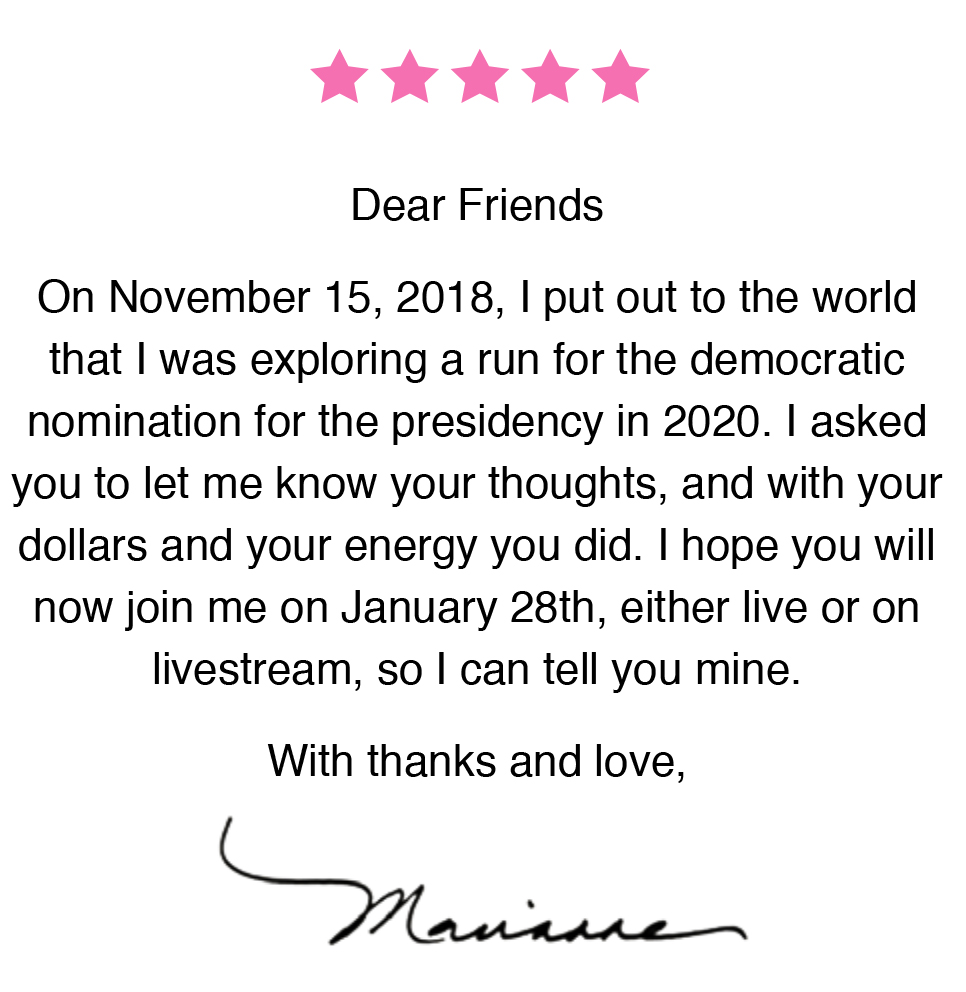 Dear Friends
On November 15, 2018, I put out to the world
that I was exploring a run for the democratic
nomination for the presidency in 2020. I asked
you to let me know your thoughts, and with your
dollars and your energy you did. I hope you will
now join me on January 28th, either live or on
livestream, so I can tell you mine.
With thanks and love,
Marianne